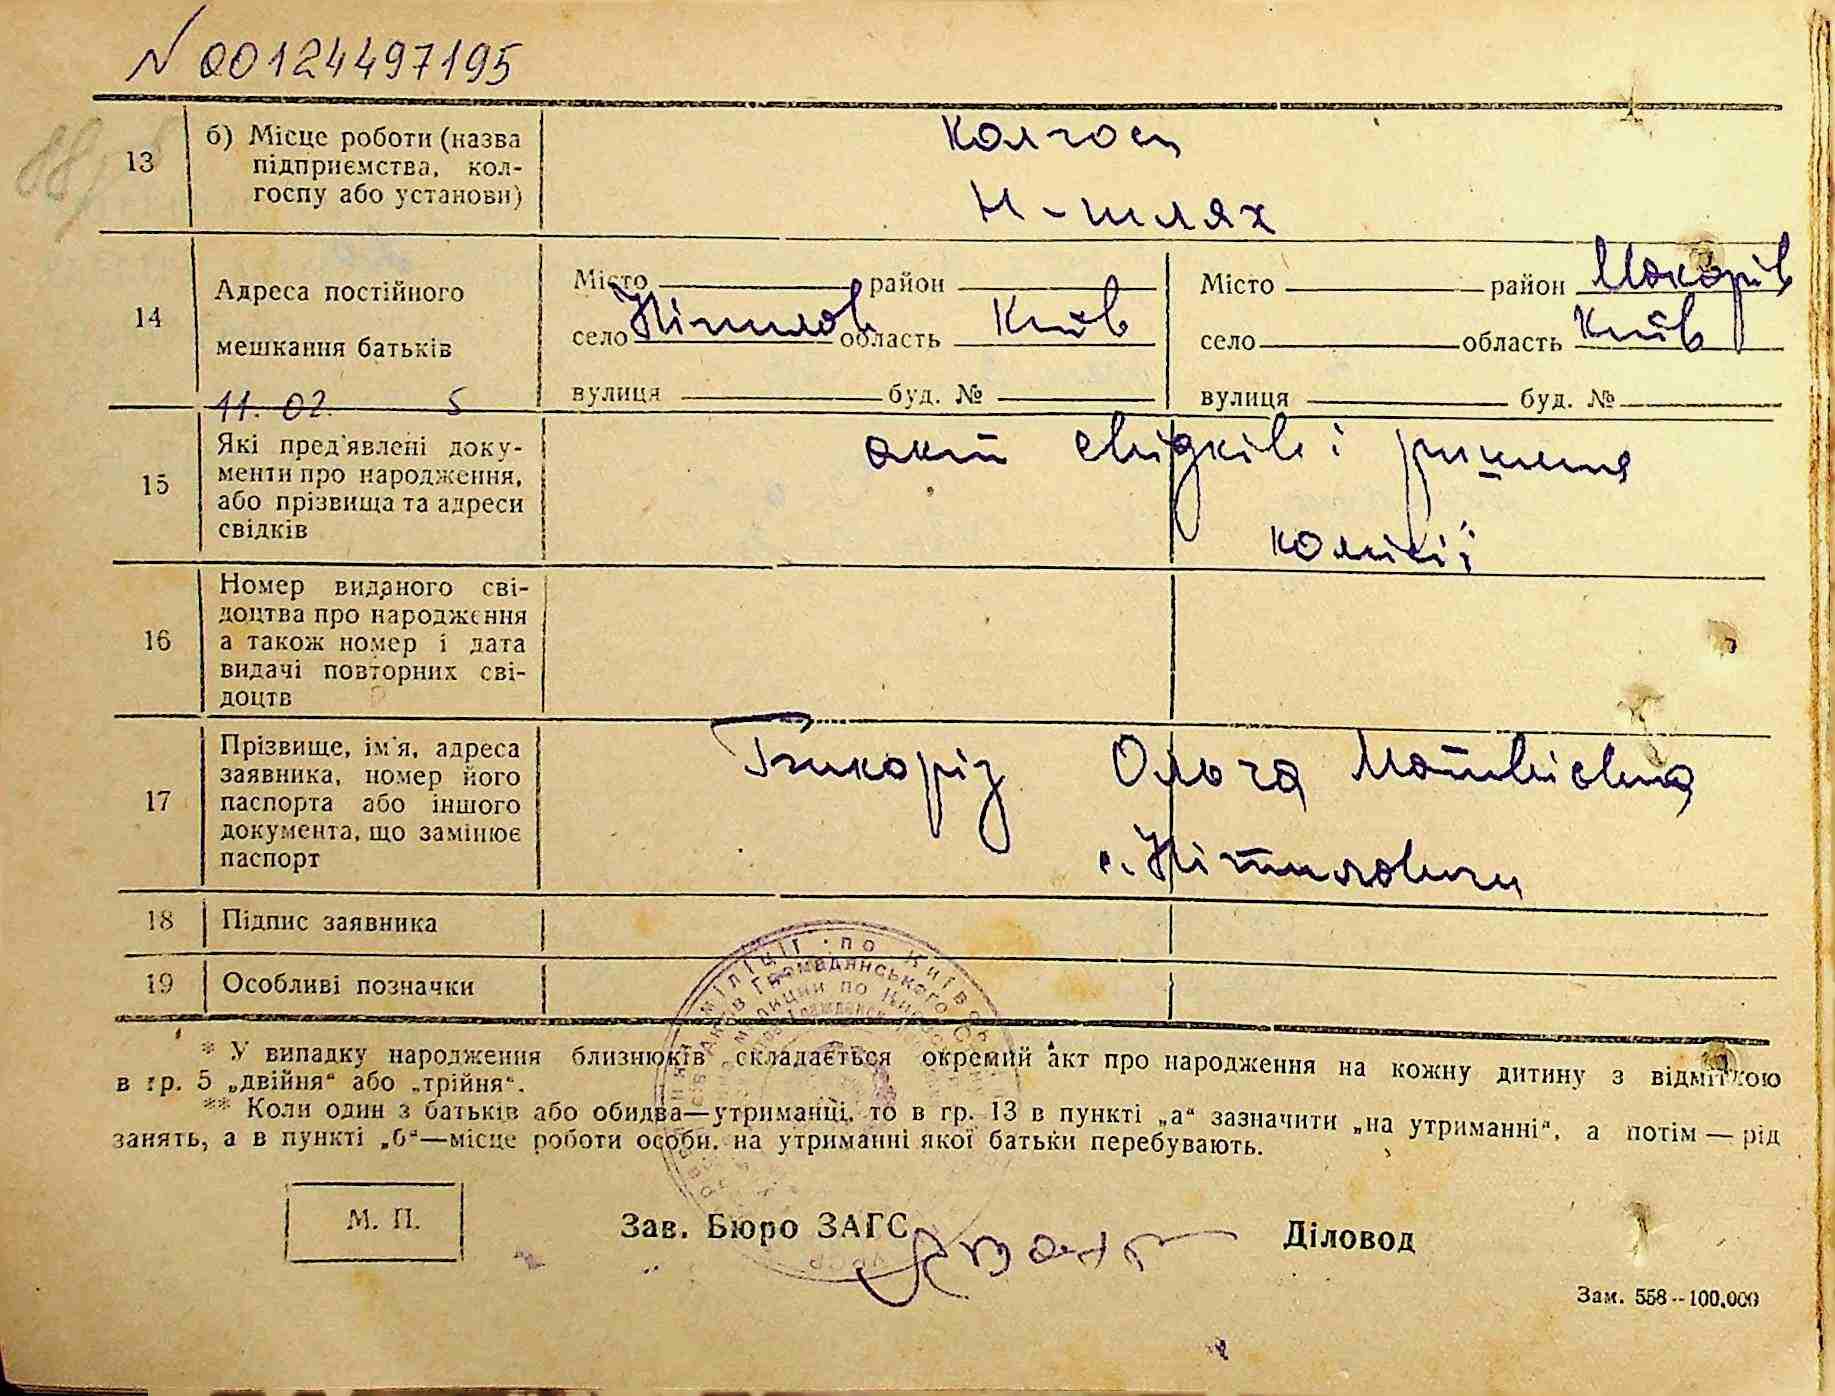 N 00124497195
13
б) Місце роботи (назва
підприємства, кол-
госпу або установи)
Колгосп
Н-шлях
14
Адреса постійного
мешкання батьків
11.02. 5
Місто район
село Ніжилов область Київ
вулиця буд. №
Місто район Макарів
село область Київ
вулиця буд. №
15
Які пред'явлені доку-
менти про народження,
або прізвища та адреси
свідків
акт свідків і рішення
комісії
16
Номер виданого сві-
доцтва про народження
а також номер і дата
видачі повторних сві-
доцтв
17
Прізвище, ім'я, адреса
заявника, номер його
паспорта або іншого
документа, що замінює
паспорт
Ольга Матвієвна
с.
18
Підпис заявника
19
Особливі позначки
* У випадку народження близнюків складається окремий акт про народження на кожну дитину з відміткою
в гр. 5 „двійня“ або „трійня“.
** Коли один з батьків або обидва—утриманці, то в гр. 13 в пункті „а“ зазначити „на утриманні“, а потім — рід
занять, а в пункті „б“—місце роботи особи, на утриманні якої батьки перебувають.
М. П.
Зав. Бюро ЗАГС
Діловод
Зам. 558--100.000